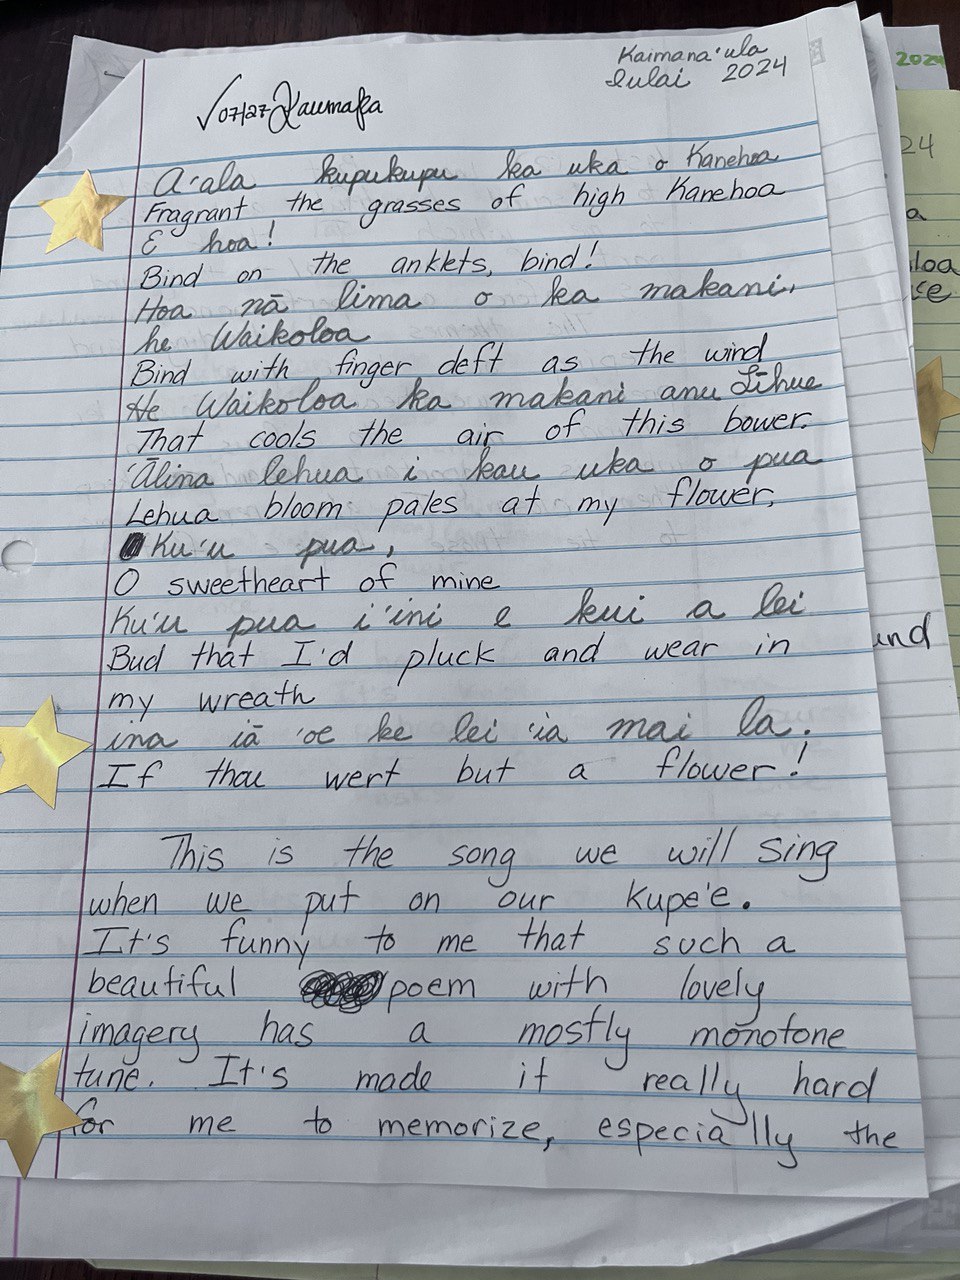 Kaimana'ula
Iulai 2024
√07/27 Kaumaka
A'ala kupukupu ka uka o Kanehoa
Fragrant the grasses of high Kanehoa
E hoa!
Bind on the anklets, bind!
Hoa nā lima o ka makani,
he Waikoloa
Bind with finger deft as the wind
He Waikoloa ka makani anu Līhue
That cools the air of this bower.
'Ālina lehua i kau uka o pua
Lehua bloom pales at my flower,
Ku'u pua,
O sweetheart of mine
Ku'u pua i'ini e kui a lei
Bud that I'd pluck and wear in
my wreath
ina iā 'oe ke lei 'ia mai la.
If thou wert but a flower!
This is the song we will sing
when we put on our Kupe'e.
It's funny to me that such a
beautiful poem with lovely
imagery has a mostly monotone
tune. It's made it really hard
for me to memorize, especially the
2024
24
a
loa
ce
and